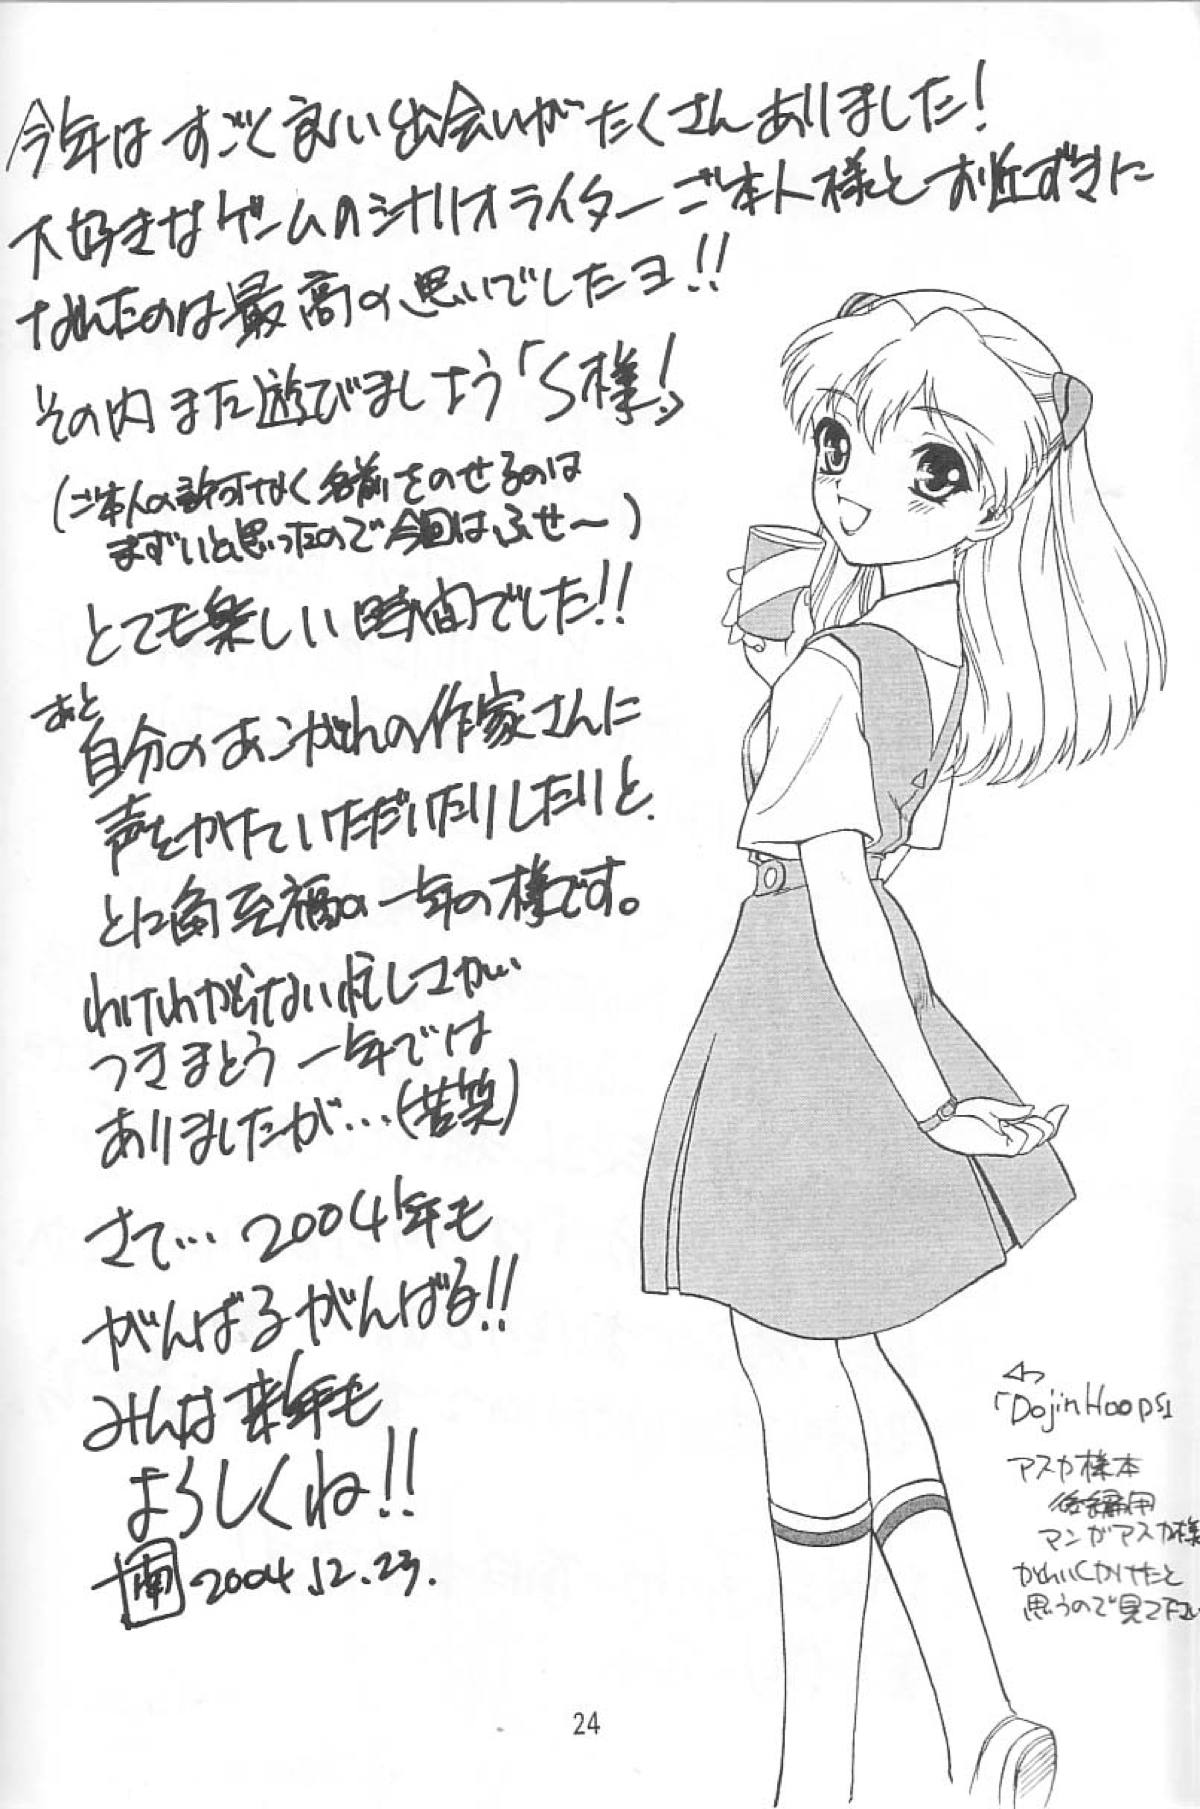 今年はすごく良い出会いがたくさんありました!
大好きなゲームのシナリオライターご本人様とお近ずきに
なれたのは最高の思いでしたヨ!!
その内また遊びましょう「S様!」
(ご本人の許可なく名前をのせるのは
まずいと思ったので今回はふせ〜)
とても楽しい時間でした!!
あと
自分のあこがれの作家さんに
声をかけていただいたりしたりと、
とに角至福の一年の様です。
わけわからない忙しさが
つきまとう一年では
ありましたが…(苦笑)
さて…2004年も
がんばるがんばる!!
みんな来年も
よろしくね!!
南 2004.12.23.
「DojinHoops」
アスカ様本
後編用
マンガアスカ様
かわいくかけたと
思うので見て下さい
24